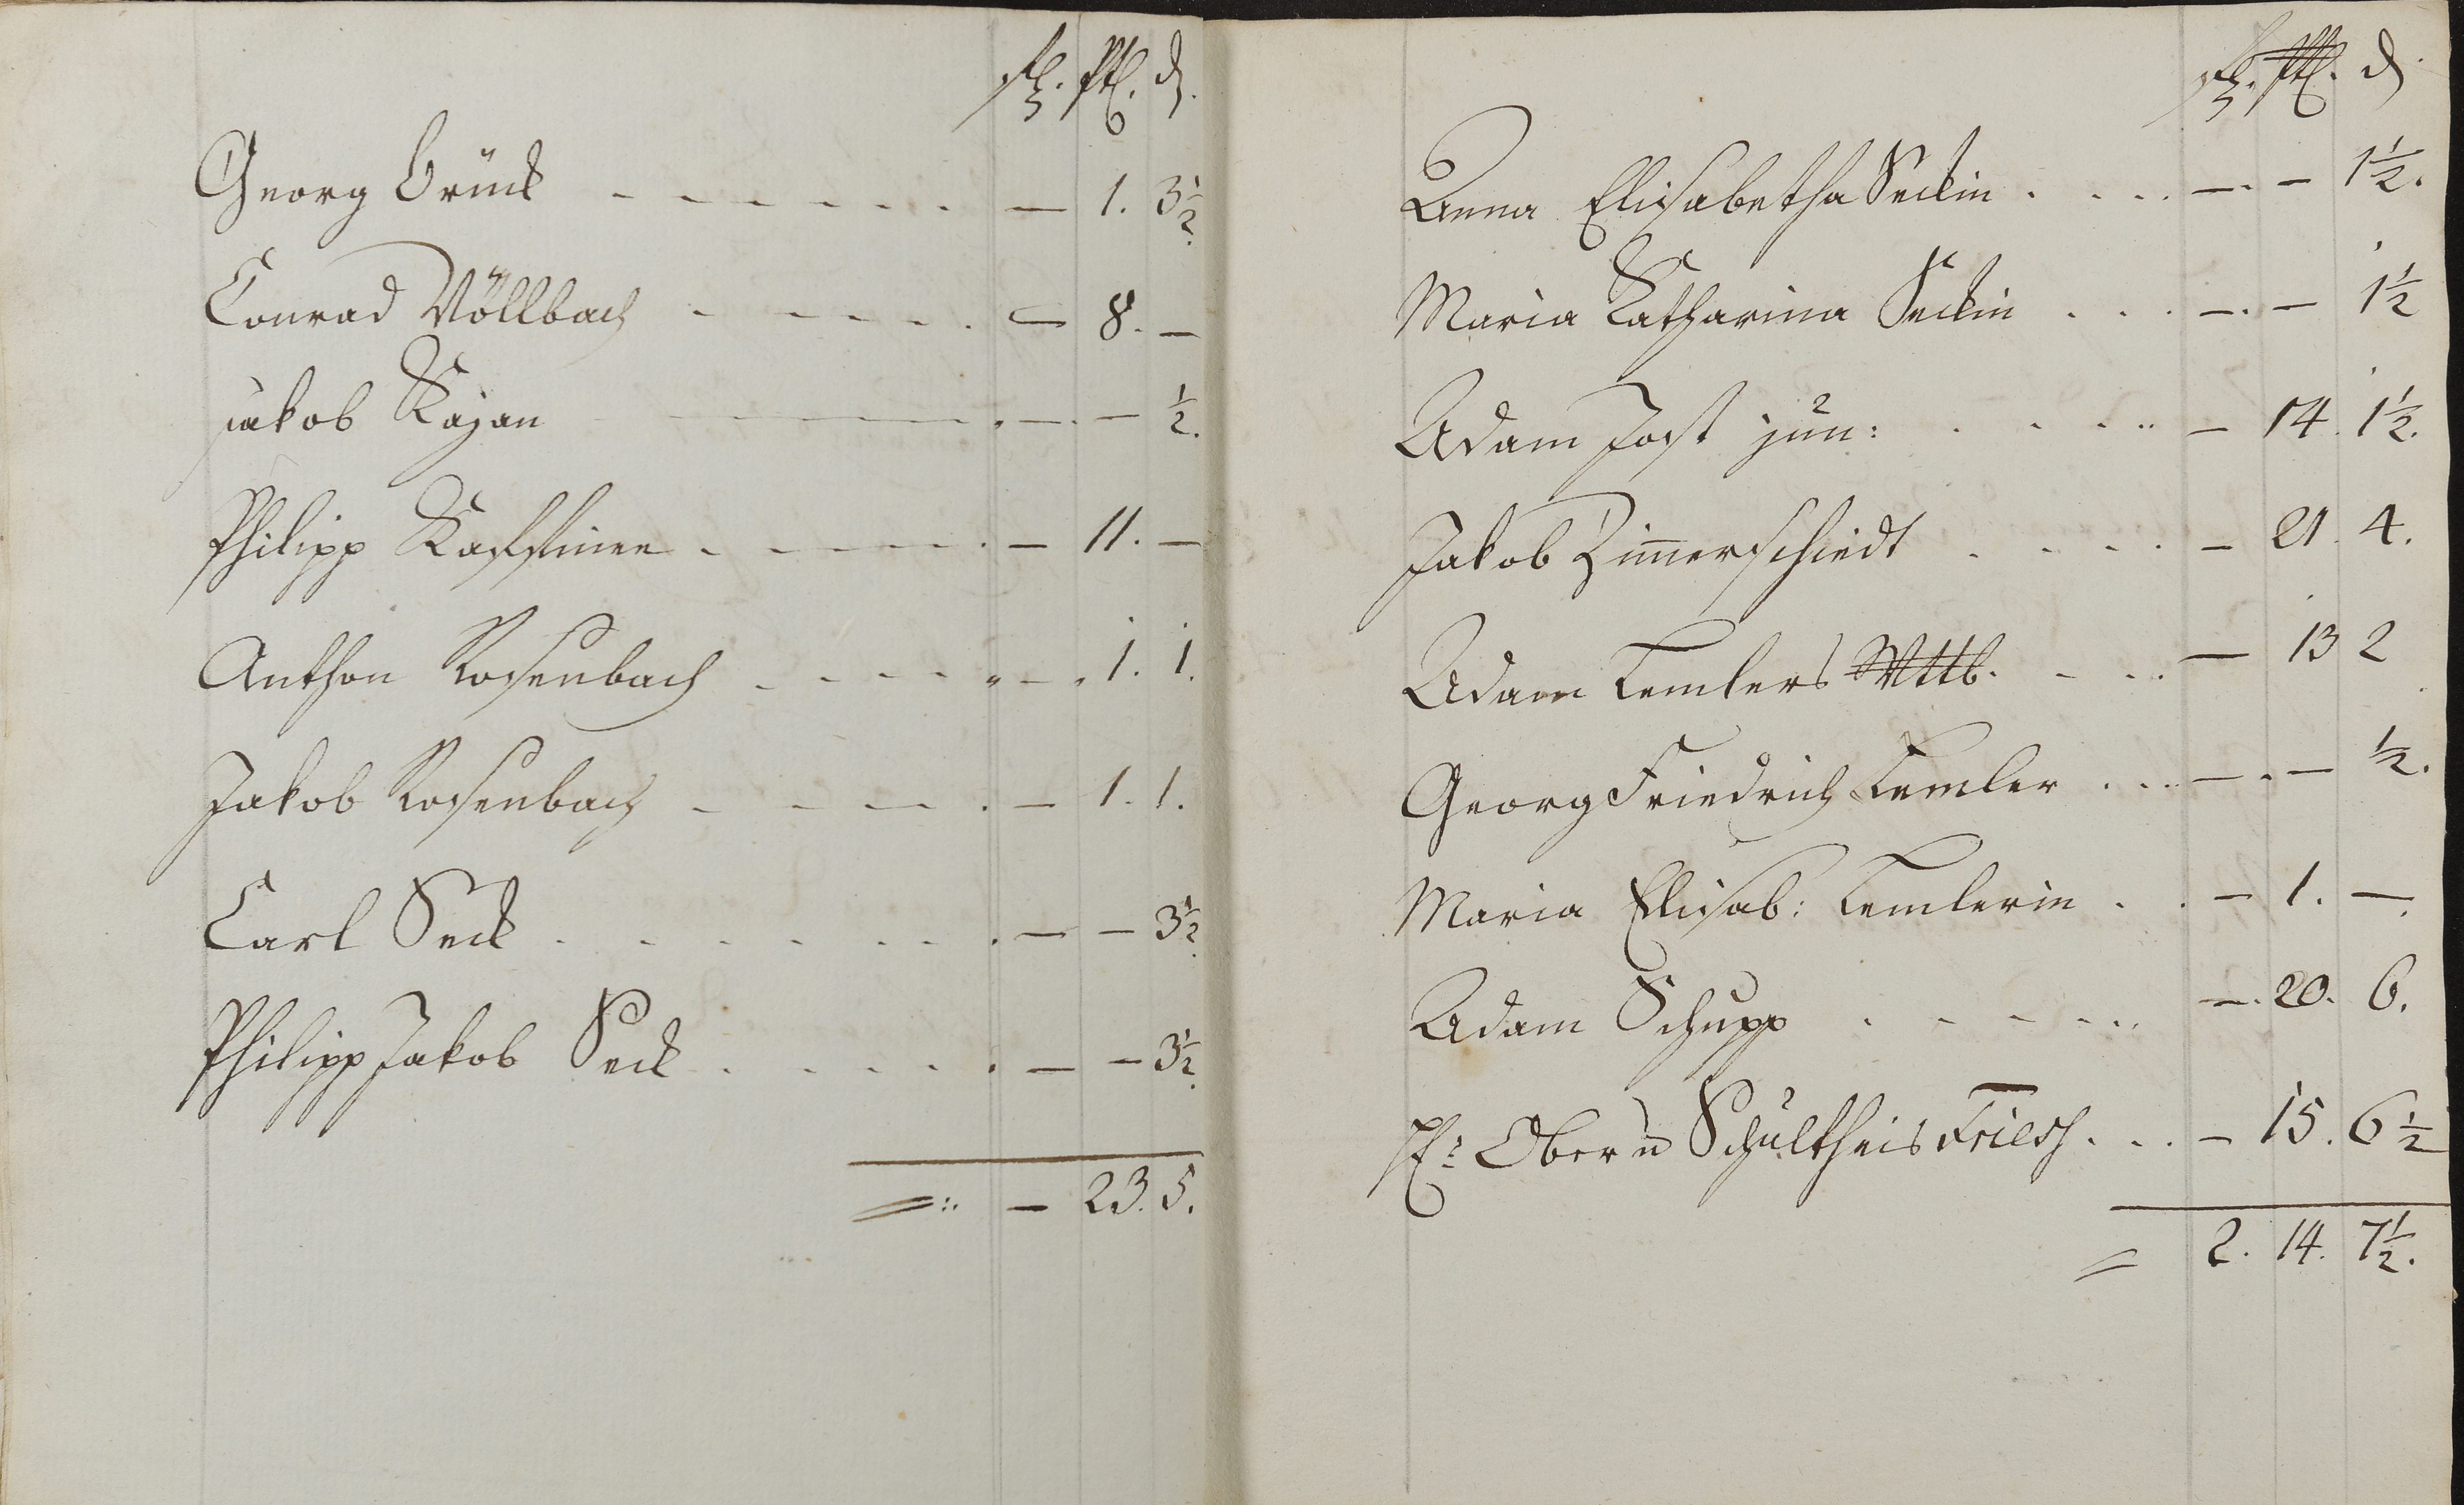 fl. ptl. d.
Georg Brück - - - - - - - — 1. 3½.
Conrad Völlbach - - - - - . — 8. —
Jakob Kajan — — . — . — ½.
Philipp - - - - - . — 11. —
Anthon Rosenbach - - - - - . — . 1. 1.
Jakob Rosenbach - - - - . — 1. 1.
Carl Seck . - - - - - . — — 3½.
Philipp Jakob Seck . - - - - . — — 3½.
=:. — 23. 5.
fl. ptl. d.
Anna Elisabetha Seckin . . . . — . — 1½.
Maria Katharina Seckin . . . — . — 1½
Adam Jost jun: . . . . . — 14. 1½.
Jakob Zimerschiedt . - - - . — 21. 4.
Adam Lemlers Wttb. - - . . — 13 2
Georg Friedrich Lemler . . . — . — ½.
Maria Elisab: Lemlerin . . — 1. —.
Adam Schupp . - - - . . —. 20. 6.
H: Ober u Schultheis . . . — 15. 6½
= 2. 14. 7½.